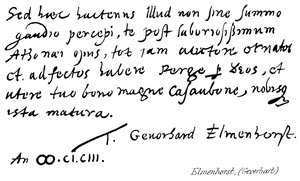 Sed huc huctenus illud non sine summo
gaudio percepi, te post laboriosissimum
Athenæi opus, tot jam auctore ornatos
et adfectos habere Perge Deos, et
utere tuo bono magne Casaubone, nobisq
ista matura.
T. Geuorhard Elmenhorst.
An CIↃ.CI.CIII.
Elmenhorst, (Geverhart)